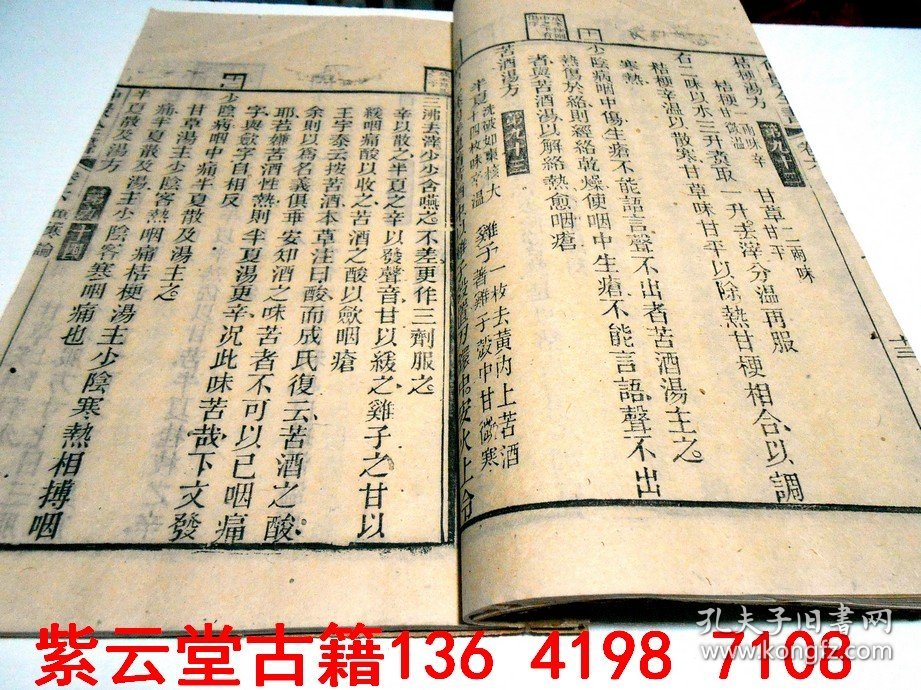 桔梗湯方
第九十二
桔梗 甘草 二兩味甘平
右二味以水三升煑取一升去滓分溫再服
桔梗辛溫以散寒甘草味甘平以除熱甘梗相合以調
寒熱
少陰病咽中傷生瘡不能語言聲不出者苦酒湯主之
熱傷於絡則經絡乾燥使咽中生瘡不能言語聲不出
者與苦酒湯以解絡熱愈咽瘡
苦酒湯方
第九十三
半夏 洗破如棗核大十四枚味辛溫 雞子一枚去黃內上苦酒著雞子殼中甘微寒
三沸去滓少少含嚥之不差更作三劑服之
辛以散之半夏之辛以發聲音甘以緩之雞子之甘以
緩咽痛酸以收之苦酒之酸以斂咽瘡
王宇泰云按苦酒本草注曰酸而成氏復云苦酒之酸
余則以爲名義俱乖安知酒之味苦者不可以已咽痛
耶若嫌苦酒性熱則半夏湯更辛況此味苦哉下文發
字與斂字自相反
少陰病咽中痛半夏散及湯主之
甘草湯主少陰客熱咽痛桔梗湯主少陰寒熱相搏咽
痛半夏散及湯主少陰客寒咽痛也
半夏散及湯方
十三
紫云堂古籍136 4198 7108
孔夫子旧书网
www.kongfz.com